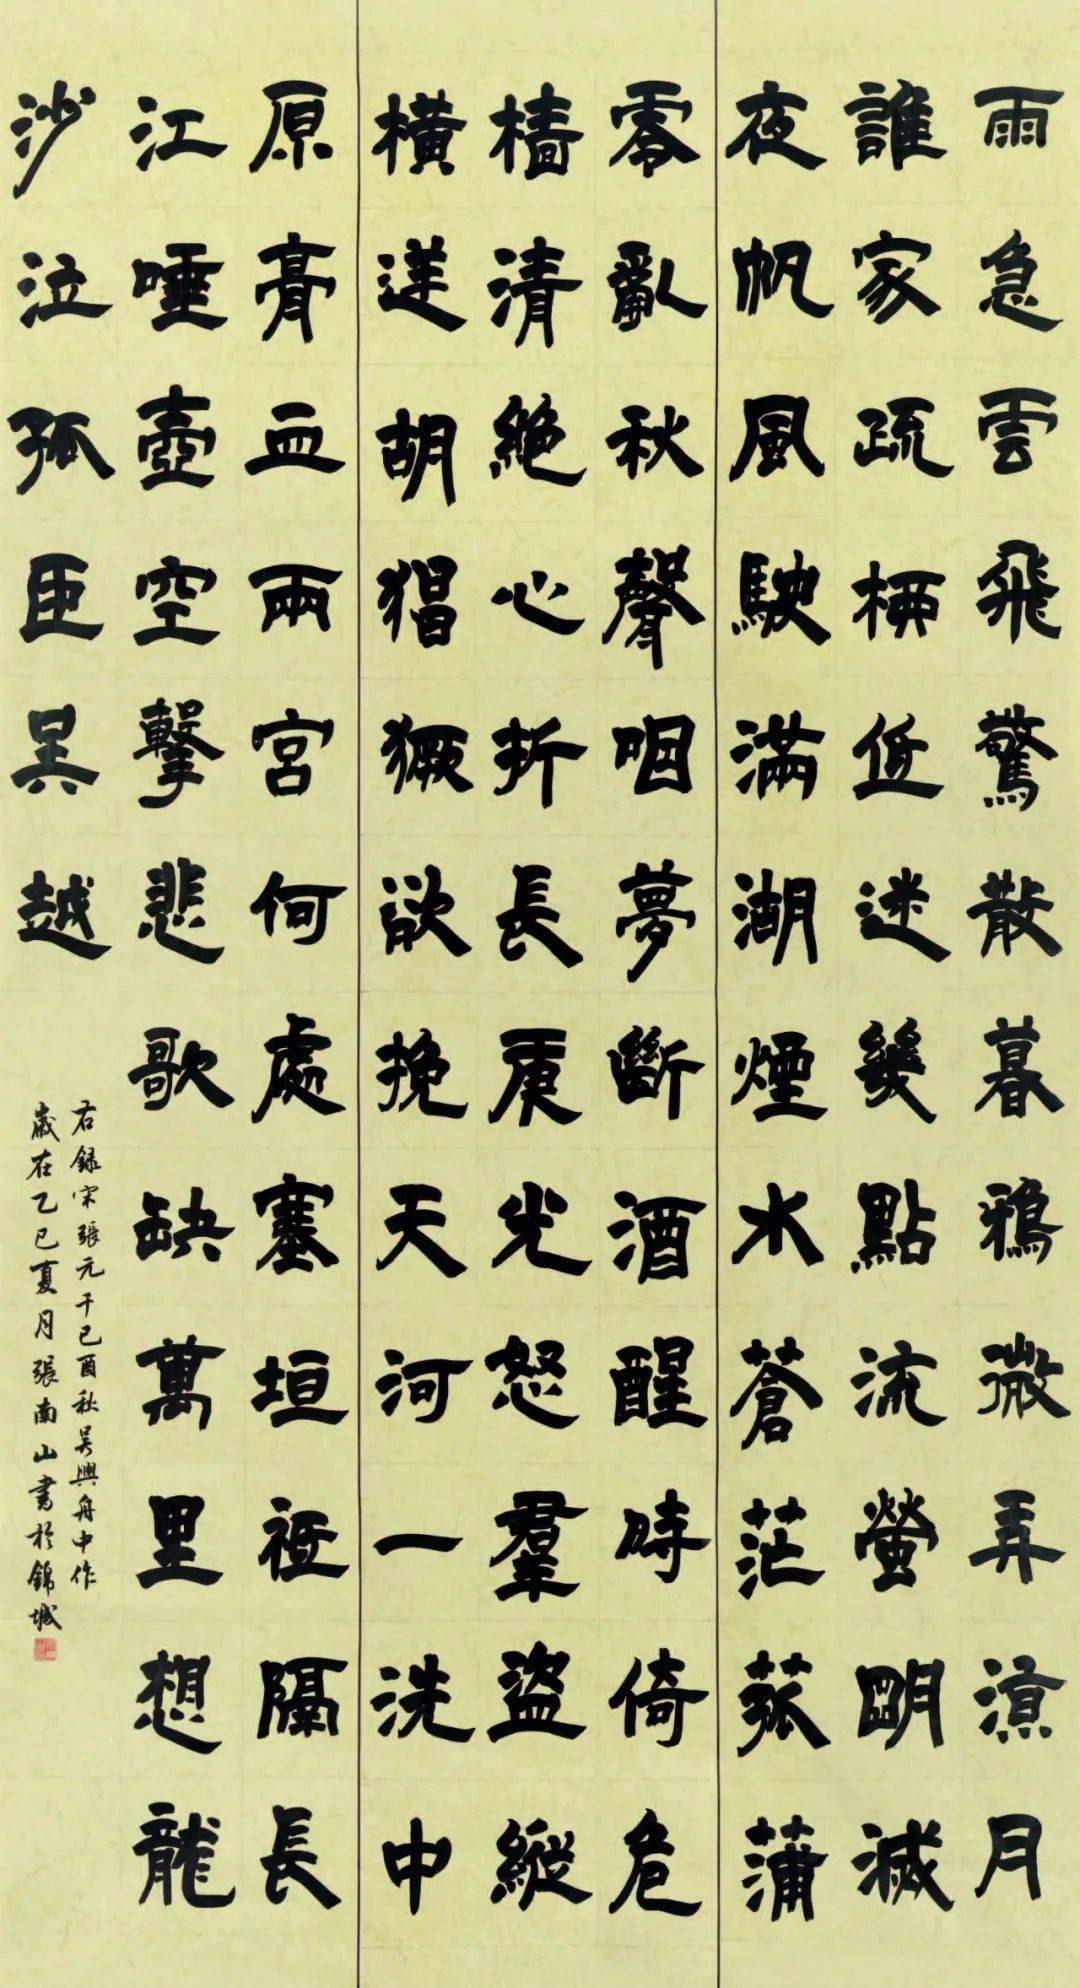 雨急雲飛驚散暮鴉微弄涼月
誰家疏柳低迷幾點流螢明滅
夜帆風駛滿湖煙水蒼茫菰蒲
零亂秋聲咽夢斷酒醒時倚危
檣清絕心折長庚光怒羣盜縱
橫逆胡猖獗欲挽天河一洗中
原膏血兩宮何處塞垣祗隔長
江唾壺空擊悲歌缺萬里想龍
沙泣孤臣吳越
右録宋張元干己酉秋吳興舟中作
歲在乙巳夏月張南山書於錦城